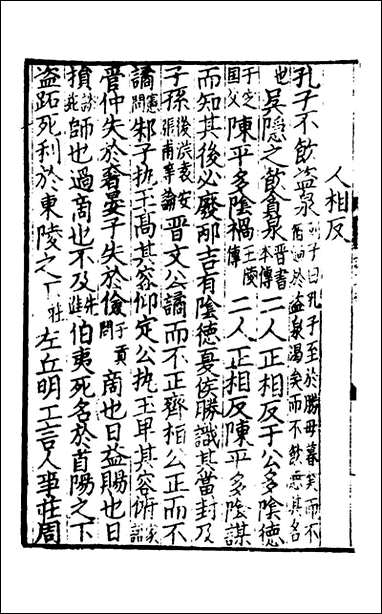 人相反
孔子不飲盜泉子曰孔子至於勝母暮矣而不宿過於盜泉渴矣而不飲惡其名
也吳隱之飲貪泉晉書本傳二人正相反于公多陰德
于定国父陳平多陰禍王陵傳二人正相反陳平多陰謀
而知其後必廢邴吉有陰德夏侯勝識其當封及
子孫後漢袁安張甫等論晉文公譎而不正齊桓公正而不
譎憲問邾子執玉高其容仰定公執玉卑其容俯家語
管仲失於奢晏子失於儉子貢問商也日益賜也日
損說苑師也過商也不及先進伯夷死名於首陽之下
盜跖死利於東陵之下莊左丘明工言人事莊周